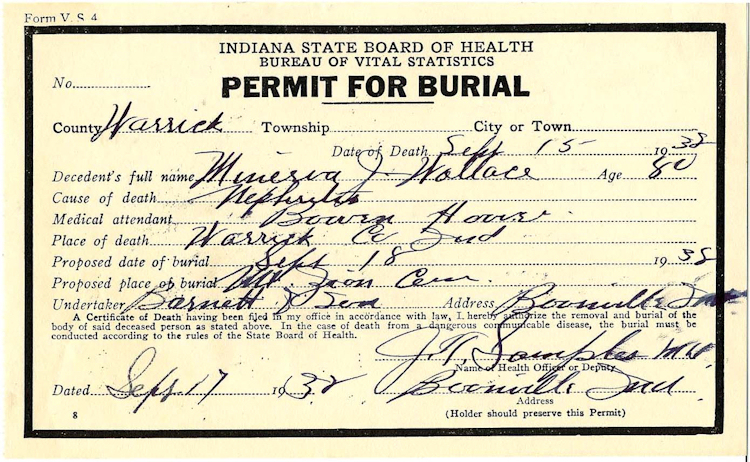 Form V. S. 4
INDIANA STATE BOARD OF HEALTH
BUREAU OF VITAL STATISTICS
No. PERMIT FOR BURIAL
County Warrick Township City or Town
Date of Death Sept 15 1938
Decedent's full name Minerva J. Wallace Age 80
Cause of death Nephritis
Medical attendant Bowen Hoover
Place of death Warrick Co Ind
Proposed date of burial Sept 18 1938
Proposed place of burial Mt. Zion Cem.
Undertaker Barnett & Son Address Boonville Ind
A Certificate of Death having been filed in my office in accordance with law, I, hereby authorize the removal and burial of the
body of said deceased person as stated above. In the case of death from a dangerous communicable disease, the burial must be
conducted according to the rules of the State Board of Health.
J. T. Samples MD
Name of Health Officer or Deputy
Dated Sept. 17 1938 Boonville Ind
Address
8 (Holder should preserve this Permit)